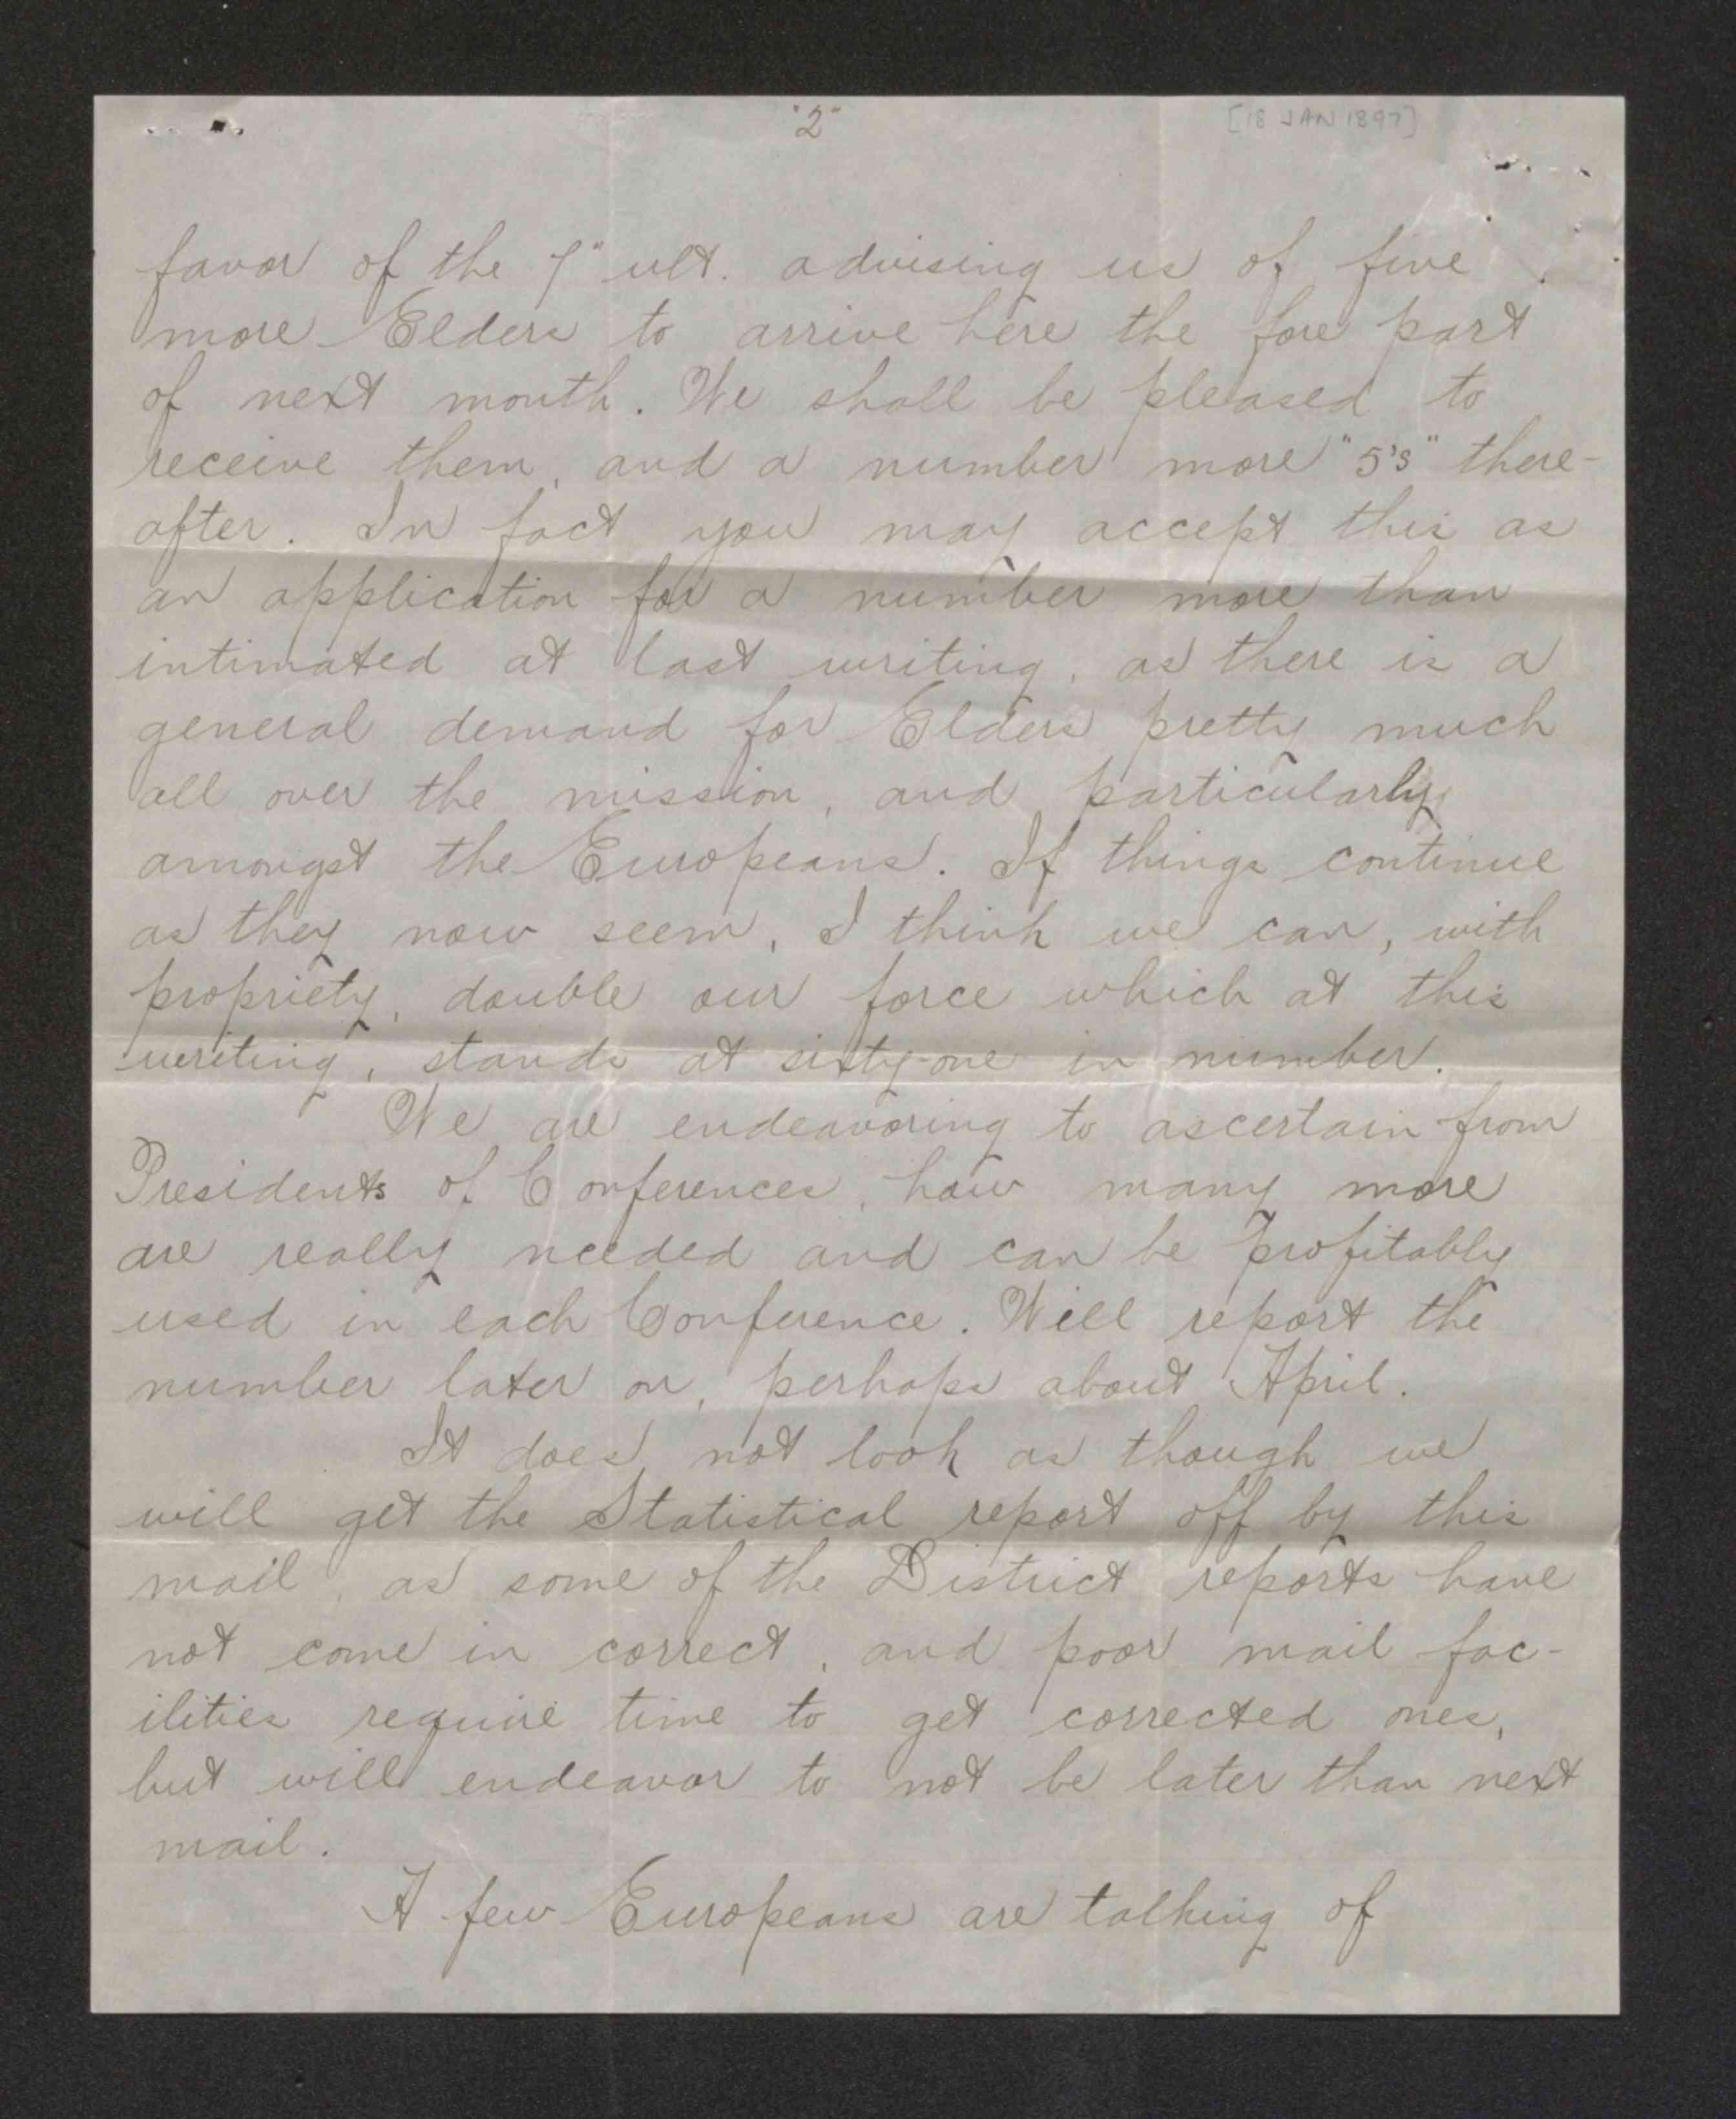 "2"
[18 JAN 1897]
favor of the 7" ult. advising us of five
more Elders to arrive here the fore part
of next month. We shall be pleased to
receive them, and a number more "5's" there-
after. In fact you may accept this as
an application for a number more than
intimated at last writing, as there is a
general demand for Elders pretty much
all over the mission, and particularly
amongst the Europeans. If things continue
as they now seem, I think we can, with
propriety, double our force which at this
writing, stands at sixty-one in number.
We are endeavoring to ascertain from
Presidents of Conferences, how many more
are really needed and can be profitably
used in each Conference. Will report the
number later on, perhaps about April.
It does not look as though we
will get the Statistical report off by this
mail, as some of the District reports have
not come in correct, and poor mail fac-
ilities require time to get corrected ones,
but will endeavor to not be later than next
mail.
A few Europeans are talking of